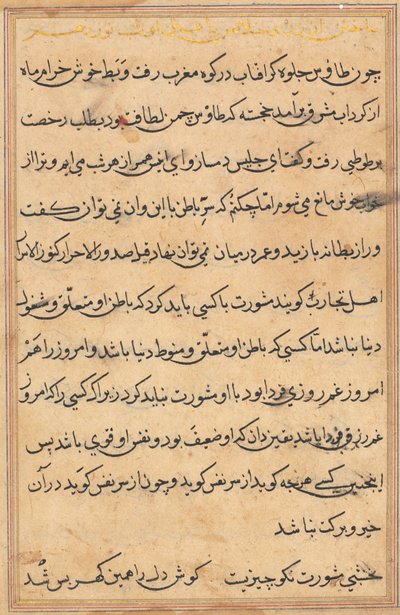 چون طاؤس جلوه کر افتاب در کوه مغرب رفت و بَط خوش خرام ماه
از کرداب مشرق برآمد خجسته که طاؤس چمن لطافت بود بطلب رخصت
بر طوطی رفت و کفت ای جلیس دمساز و ای انیس همراز هر شب می ایم و ترا از
خواب خوش مانع می شوم امّا چکنم که سرّ باطن با این و ان نمی توان کفت
و راز بطانه با زید و عمر در میان نمی توان نهاد قیل صدور الاحرار کنوز الاسرار
اهل تجارب کویند مشورت با کسی باید کرد که باطن او متعلّق و مشغول
دنیا نباشد امّا کسی که باطن او متعلّق و منوط دنیا باشد و امروز را هم
امروز غم روزی فردا بود با او مشورت نباید کرد زیراکه کسی را که امروز
غم رزق فردا باشد یقین دان که او ضعیف بود و نفس او قوی باشد پس
اینچنین کسی هرچه کوید از سر نفس کوید و چون از سر نفس کوید در آن
خیر و برکت نباشد
نخشبی مشورت نکو چیزیست کوش دل را همین کهر بس شد